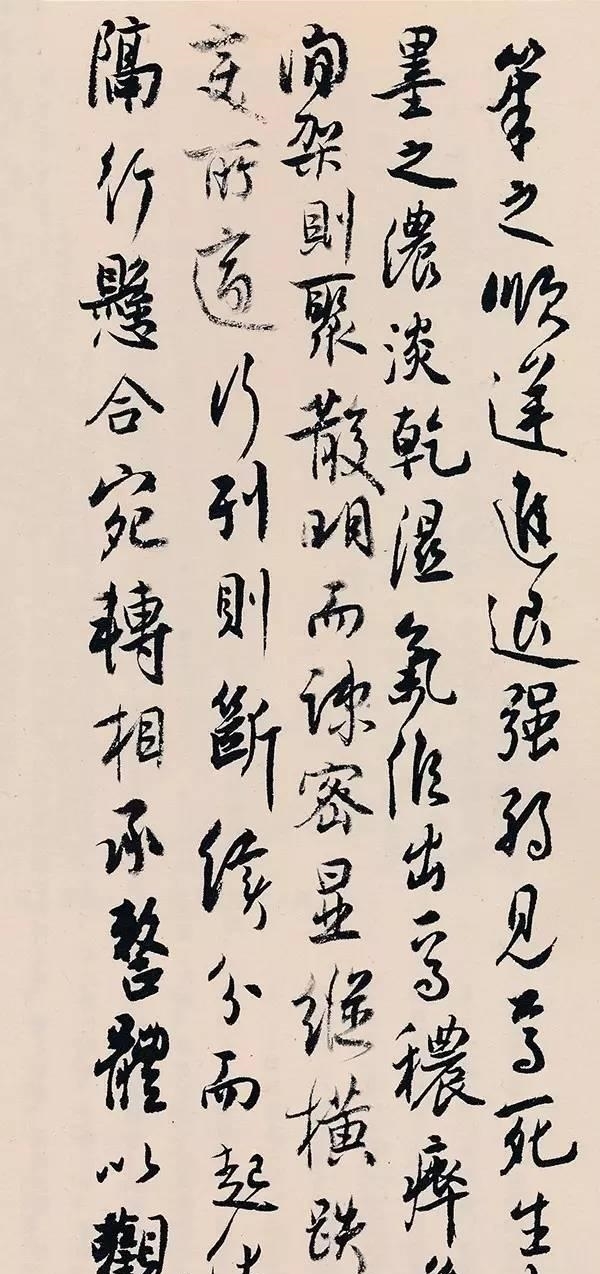 筆之順逆進退强弱見焉死生
墨之濃淡乾濕氣候出焉穠
間架則聚散明而疎密显縱橫跌
变所適行列則斷續分而起
隔行懸合宛轉相承整體以觀